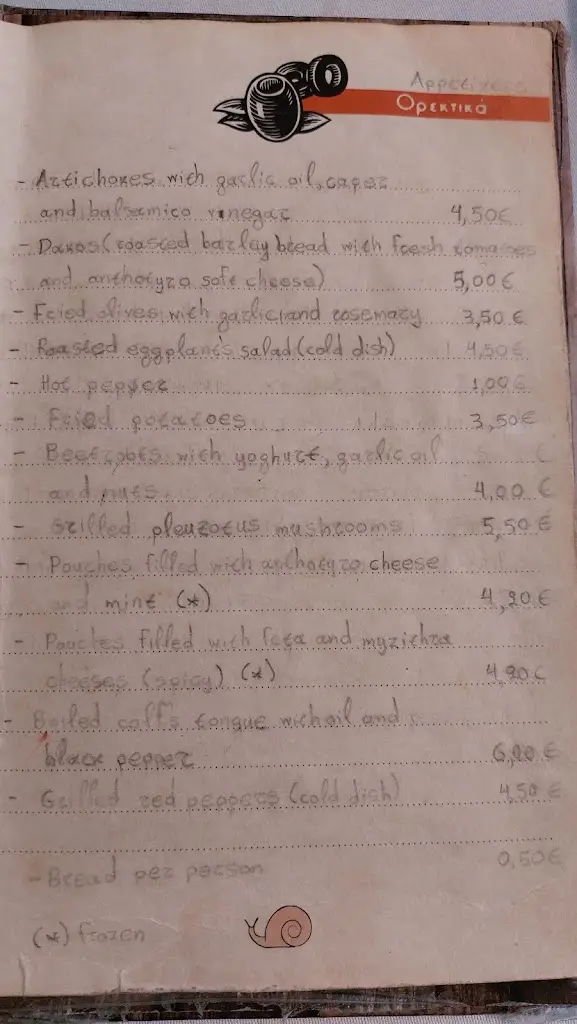 Appetizers
Ορεκτικά
- Artichokes with garlic oil, caper
and balsamico vinegar 4,50€
- Dakos (roasted barley bread with fresh tomatoes
and anthotyro soft cheese) 5,00€
- Fried olives with garlic and rosemary 3,50€
- Roasted eggplant's salad (cold dish) 4,50€
- Hot pepper 1,00€
- Fried potatoes 3,50€
- Beetroots with yoghurt, garlic oil
and nuts 4,00€
- Grilled pleurotus mushrooms 5,50€
- Pouches filled with anthotyro cheese
and mint (*)
- Pouches filled with feta and myzithra
cheeses (spicy) (*)
- Boiled calf's tongue with oil and
black pepper
- Grilled red peppers (cold dish) 4,50€
- Bread per person 0,50€
(*) frozen